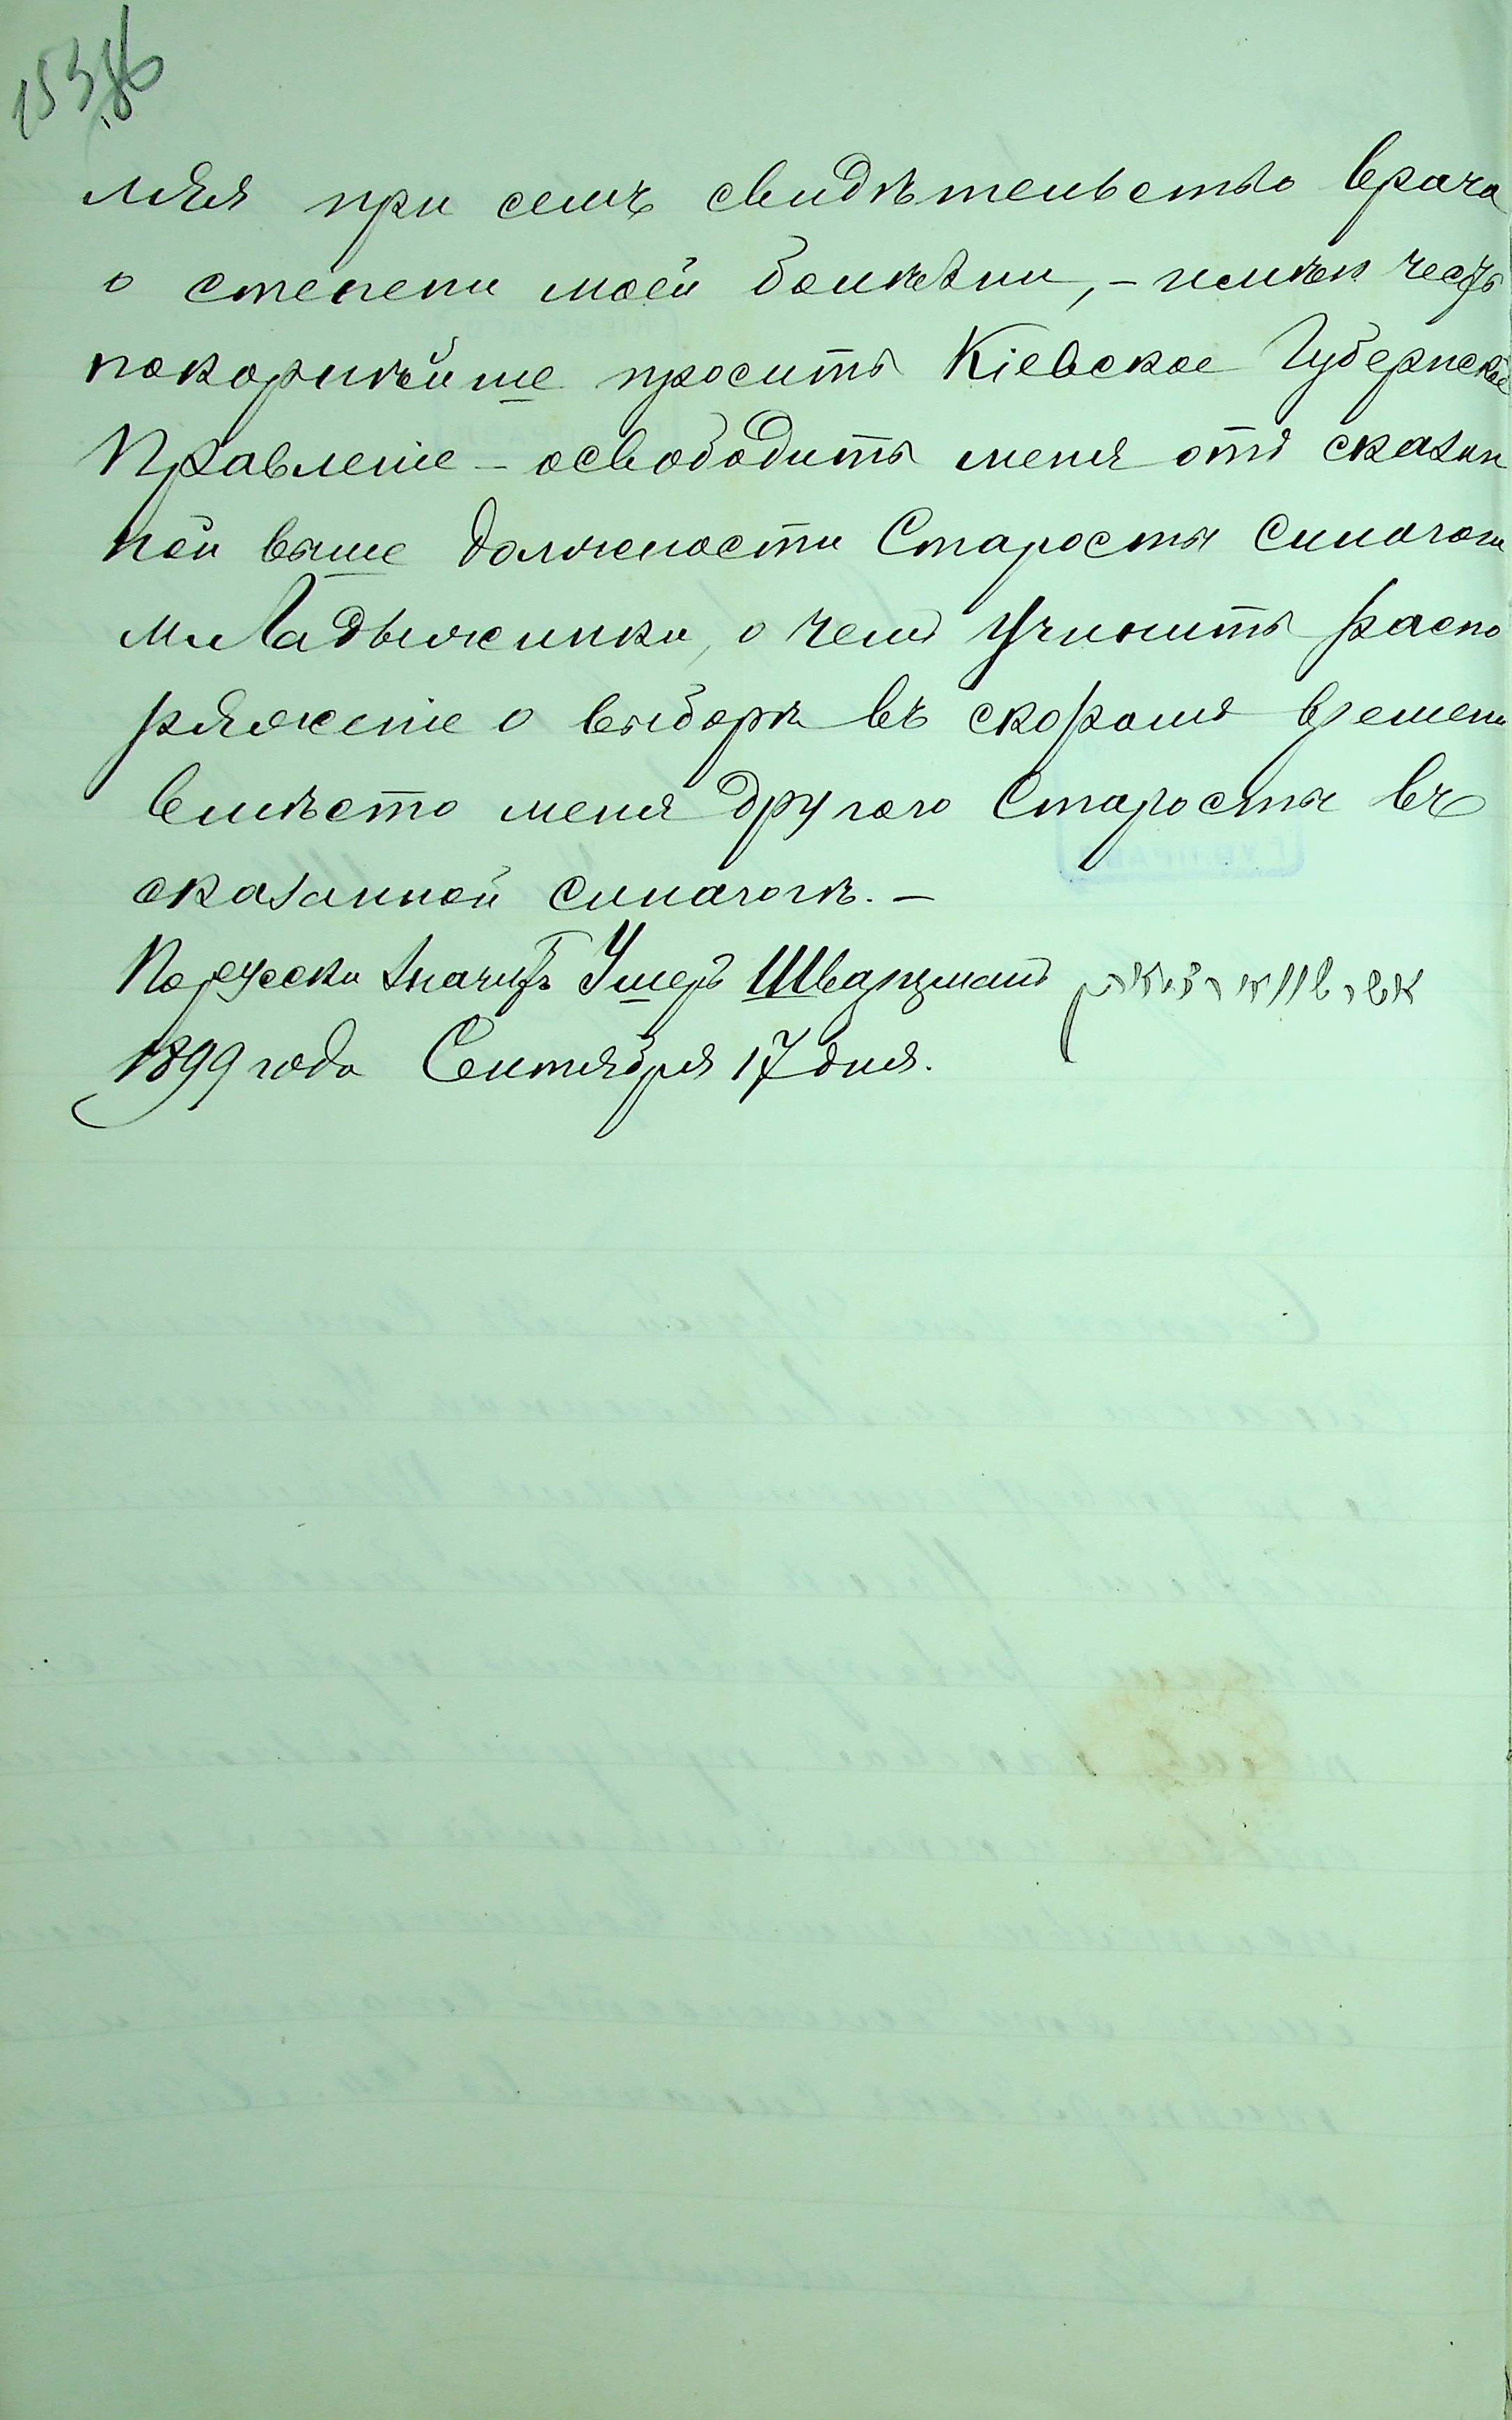 153
ляя при семъ свидѣтельство врача
о степени моей болѣзни, - имѣю честь
покорнѣйше просить Кіевское Губернское
Правленіе - освободить меня отъ сказан
ной выше должности Старосты синагоги
м. Ладыжинки, о чемъ учинить распо
ряженіе о выборѣ въ скоромъ времени
вмѣсто меня другого Старосты въ
сказанной синагогѣ. -
По русски значитъ Ушеръ Шварцманъ
1899 года Сентября 17 дня.